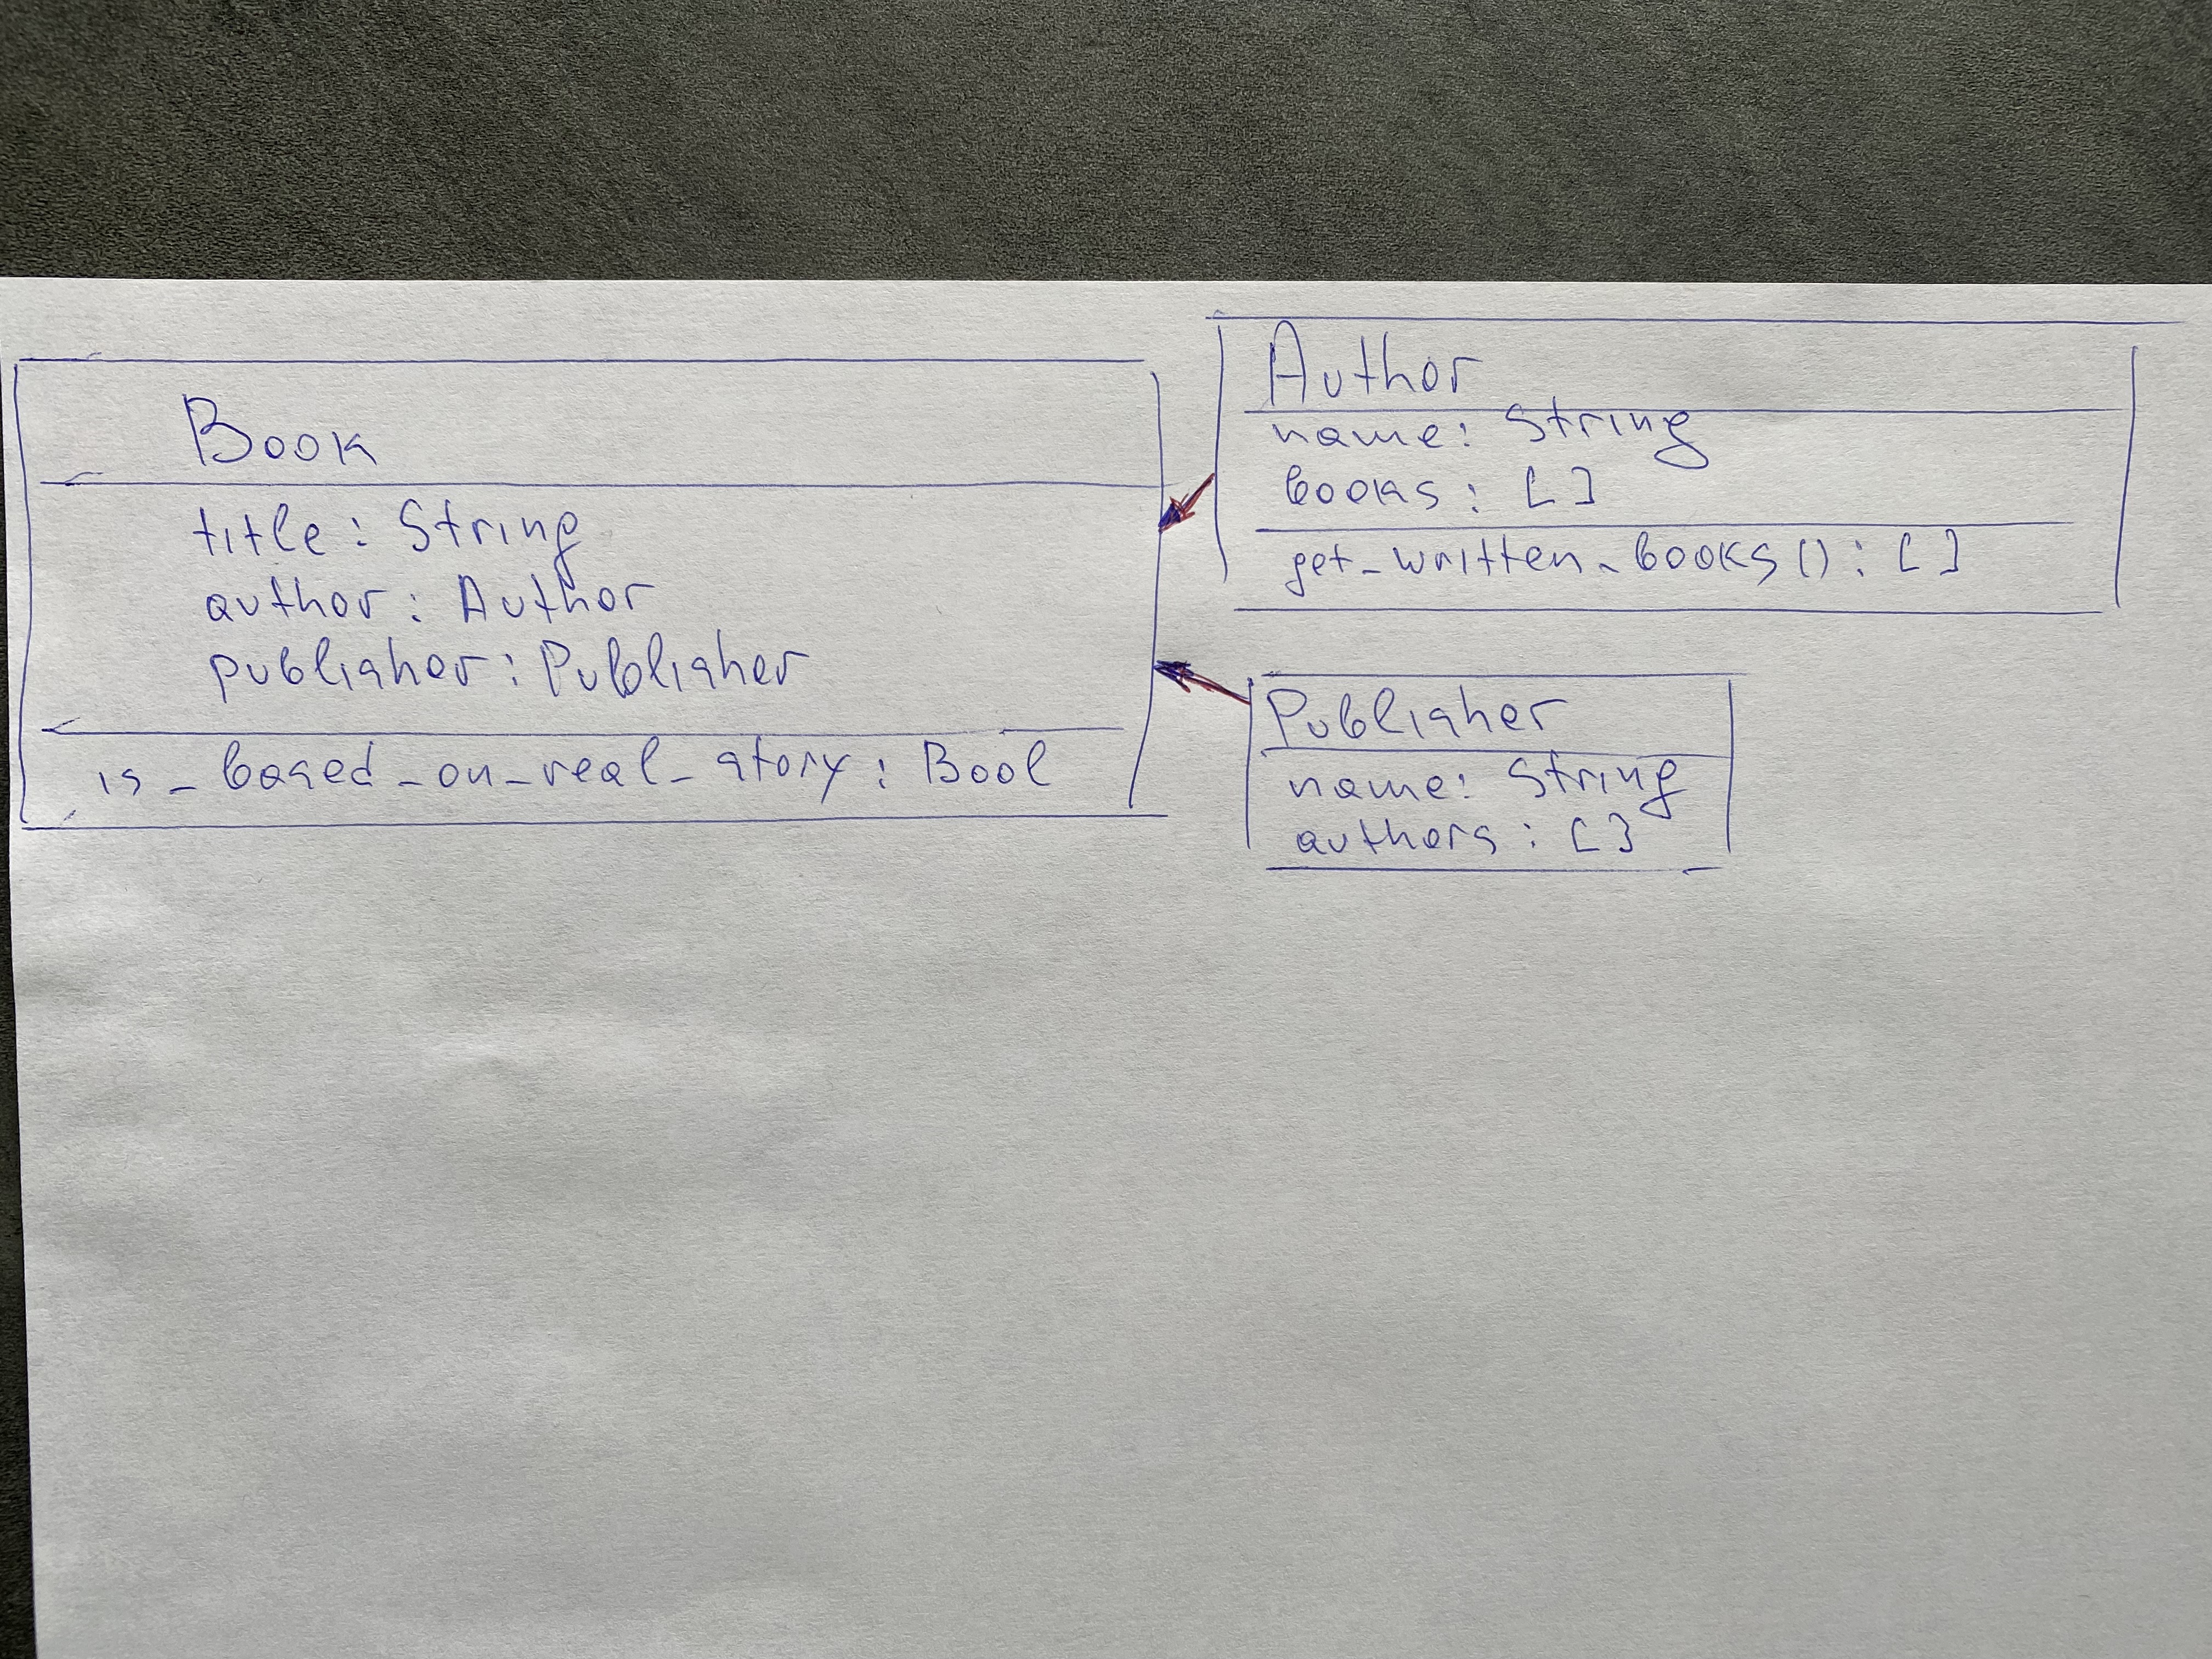 Book
title: String
author: Author
publisher: Publisher
is_based_on_real_story: Bool
Author
name: String
books: []
get_written_books(): []
Publisher
name: String
authors: []